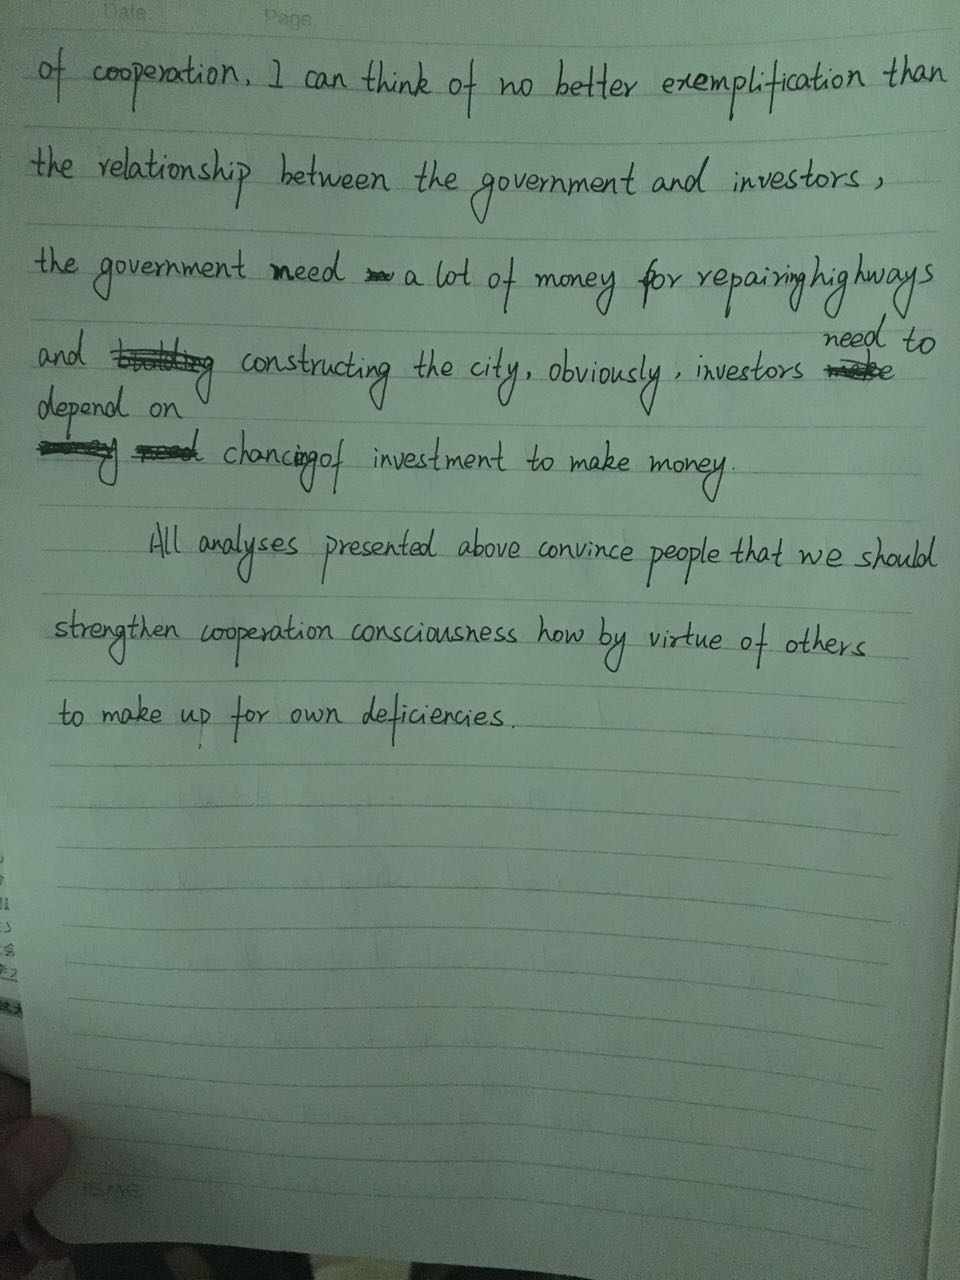 Date. Page.
of cooperation, I can think of no better exemplification than
the relationship between the government and investors,
the government need a lot of money for repairing highways
need to
and constructing the city, obviously, investors
depend on
chancing of investment to make money.
All analyses presented above convince people that we should
strengthen cooperation consciousness how by virtue of others
to make up for own deficiencies.
ISME